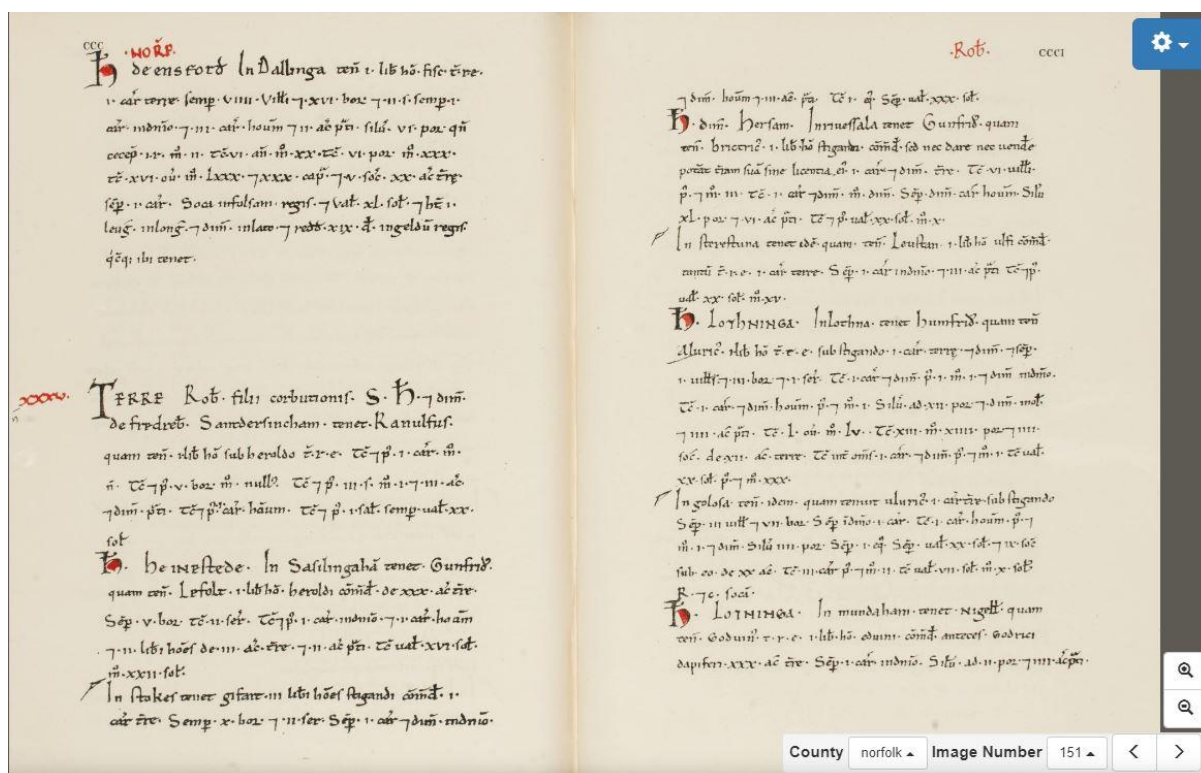 ccc
·NORF·
H de ensford In Dallinga ten̄ ·i· lib̄ hō· fisc· t̄· re·
·i· car̄ terre· semp̄· viiii· villi ⁊ xvi· bor· ⁊ ·ii· s· semp̄ ·i·
car̄· in dn̄io· ⁊ ·iii· car̄· houm̄ ⁊ ·ii· ac̄ p̄ti· silu̅· vi· por· qn̄
recep̄· m̄· ii· tc̄ vi· an̄· m̄· xx· tc̄· vi· por m̄· xxx·
tc̄· xvi· ou̅· m̄· lxxx· ⁊ xxx· cap̄· ⁊ ·v· soc̄· xx· ac̄ t̄rę·
sēp̄· i· car̄· Soca in folsam· regis· ⁊ val̄· xl· sol̄· ⁊ ht̄ ·i·
leug̅· in long̅· ⁊ dim̄· in lato· ⁊ redd̄· xix· d̄· in geldū regis·
q̄cq; ibi tenet·
xxxv·
TERRE Rob̄· filii corbutionis· S· H· ⁊ dim̄·
de fredreb̄· Santdersincham· tenet· Ranulfus·
quam ten̄· ·i· lib̄ hō sub heroldo t̄· r· e· Tc̄ ⁊ p̄· i· car̄· m̄·
n̄· Tc̄ ⁊ p̄· v· bor· m̄· null᷒· Tc̄ ⁊ p̄· iii· s· m̄· i· ⁊ ·iii· ac̄·
⁊ dim̄· p̄ti· Tc̄ ⁊ p̄· car̄· hōum· Tc̄ ⁊ p̄· i· sal̄· semper· val̄· xx·
sol̄
H· HEINESTEDE· In Sasilingahā tenet· Gunfrid᷒·
quam ten̄· Lefolt· i· lib̄ hō· heroldi cōmd̄· de xxx· ac̄ t̄re·
Sēp̄· v· bor· tc̄· ii· ser̄· Tc̄ ⁊ p̄· i· car̄· in dn̄io· ⁊ ·i· car̄· hoūm
⁊ ·ii· lib̄i hōes de· iii· ac̄· t̄re· ⁊ ·ii· ac̄ p̄ti· tc̄ val̄· xvi· sol̄·
m̄· xxii· sol̄·
In stokes tenet gifart· iii lib̄i hōes stigandi cōmd̄· i·
car̄ t̄re· Semp̄· x· bor· ⁊ ·ii· ser· Sēp̄· i· car̄ ⁊ dim̄· in dn̄io·
·Rob̄·
ccci
⁊ dim̄· houm ⁊ ·iii· ac̄· p̄ti· Tc̄ i· Sēp̄· val̄· xxx· sol̄·
H· dim̄· Hersam· In riuessala tenet Gunfrid᷒· quam
ten̄· brictric᷒· i· lib̄ hō stigandi cōmd̄· sed nec dare nec uende
potāt t̄ram suā sine licentia ei᷒· i· car̄ ⁊ dim̄· t̄re· Tc̄ vi· villi·
p̄· ⁊ m̄· iii· Tc̄· i· car̄ ⁊ dim̄· m̄· dim̄· Sēp̄· dim̄· car̄ houm· Silu̅
xl· por· ⁊ vi· ac̄ p̄ti· Tc̄ ⁊ p̄ val̄· xx· sol̄· m̄· x·
In sterestuna tenet idē· quam· ten̄· Leustan· i· lib̄ hō ulfi cōmd̄·
tantū t̄· r· e· i· car̄ terre· Sēp̄· i· car̄ in dn̄io· ⁊ ·iii· ac̄ p̄ti Tc̄ ⁊ p̄·
val̄· xx· sol̄· m̄· xv·
H· LOTHNINGA· In lothna· tenet Humfrid᷒· quam ten̄
Aluric᷒· ·i· lib̄ hō t̄· r· e· sub stigando· i· car̄· terrę· ⁊ dim̄· ⁊ sēp̄·
·i· vill᷒s· ⁊ ·iii· bor· ⁊ ·i· ser̄· Tc̄· i· car̄· ⁊ dim̄· p̄· i· m̄· i· ⁊ dim̄ in dn̄io·
Tc̄· i· car̄· ⁊ dim̄· houm· p̄· ⁊ m̄· i· Silu̅· ad· xii· por· ⁊ dim̄· mol̄·
⁊ iiii· ac̄ p̄ti· Tc̄· l· ou̅· m̄· lv· Tc̄· xiii· m̄· xiiii· por· ⁊ iiii·
soc̄· de xii· ac̄· terre· Tc̄ int̄ om̄s· i· car̄· ⁊ dim̄· p̄· ⁊ m̄· i· tc̄ val̄·
xx· sol̄· p̄· ⁊ m̄· xxx·
In golosa· ten̄· idem· quam tenuit uluric᷒· i· car̄ t̄re· sub stigando
Sēp̄· iii vill̄ ⁊ vii· bor· Sēp̄ i dn̄io· i· car̄· Tc̄· i· car̄· houm· p̄· ⁊
m̄· i· ⁊ dim̄· Silu̅ iiii· por· Sēp̄· i· eq̄· Sēp̄· val̄· xx· sol̄· ⁊ ix· soc̄
sub· eo· de xx ac̄· Tc̄· iii· car̄ p̄· ⁊ m̄· ii· tc̄ val̄· vii· sol̄· m̄· x· sol̄·
R· ⁊ c· socā·
H· LOTNINGA· In mundaham· tenet· Nigell᷒· quam
ten̄· Goduin᷒· t· r· e· i· lib̄ hō· eduini· cōmd̄· anteces· Godrici
dapiferi· xxx· ac̄ t̄re· Sēp̄· i· car̄· in dn̄io· Silu̅· ad· ii· por· ⁊ iiii· ac̄ p̄ti·
County norfolk Image Number 151